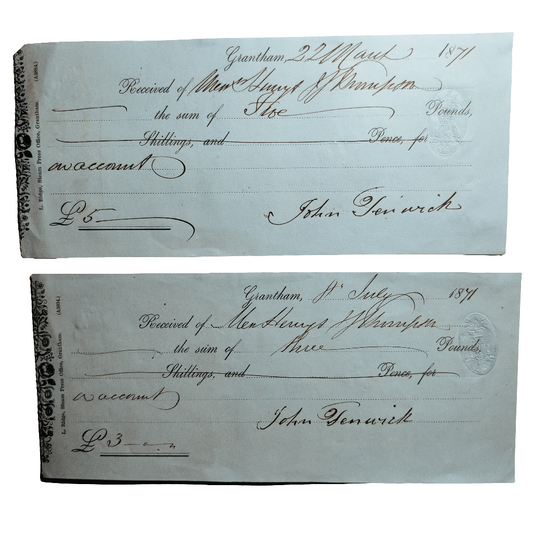 Grantham, 22 March 1871
Received of Messrs Henrys & Thompson
the sum of Five Pounds,
Shillings, and Pence, for
on account
£5
John Fenwick
L. Ridge, Steam Press Office, Grantham.
Grantham, 8th July 1871
Received of Messrs Henrys & Thompson
the sum of three Pounds,
Shillings, and Pence, for
on account
£3
John Fenwick
L. Ridge, Steam Press Office, Grantham.